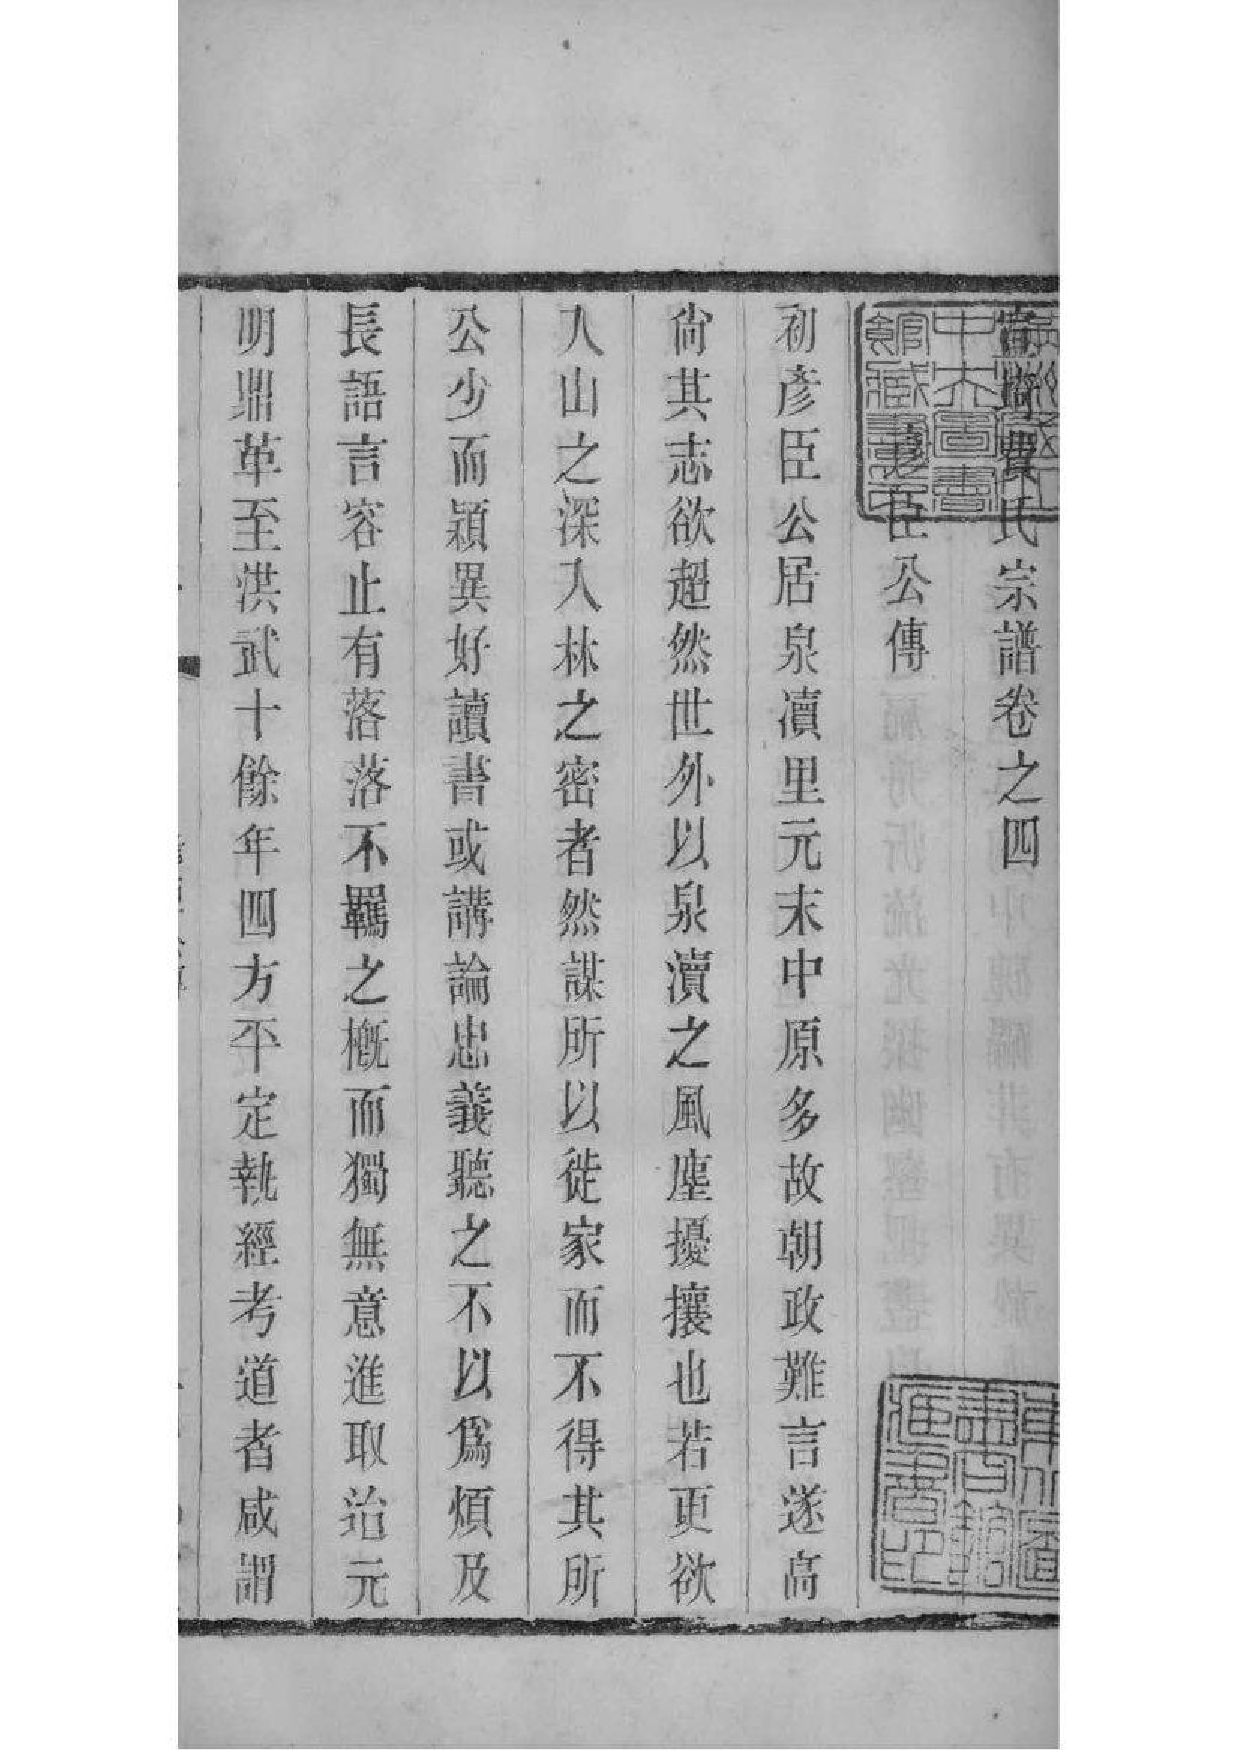 費氏宗譜卷之四
彥臣公傳
初彥臣公居泉瀆里元末中原多故朝政難言遂高
尙其志欲超然世外以泉瀆之風塵擾攘也若更欲
入山之深入林之密者然謀所以徙家而不得其所
公少而穎異好讀書或講論忠義聽之不以爲煩及
長語言容止有落落不羈之槪而獨無意進取治元
明鼎革至洪武十餘年四方平定執經考道者咸謂